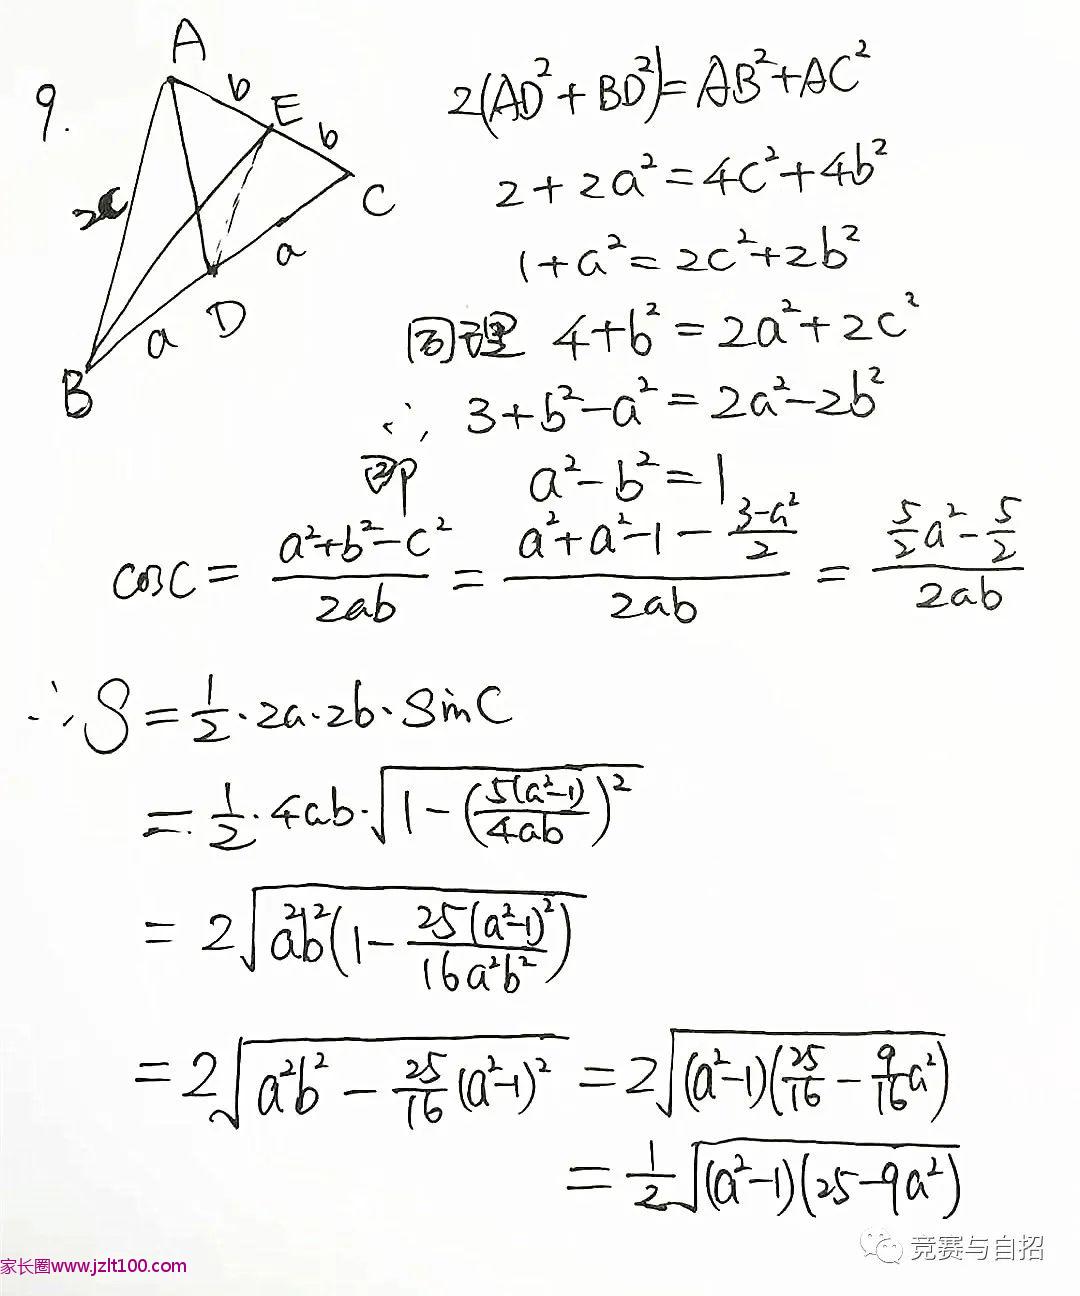 9.
A
b
E
b
C
2c
a
D
a
B
2(AD²+BD²)=AB²+AC²
2+2a²=4c²+4b²
1+a²=2c²+2b²
同理 4+b²=2a²+2c²
∴ 3+b²-a²=2a²-2b²
即 a²-b²=1
cosC= \frac{a²+b²-c²}{2ab} = \frac{a²+a²-1-\frac{3-a²}{2}}{2ab} = \frac{\frac{5}{2}a²-\frac{5}{2}}{2ab}
∴ S=\frac{1}{2}·2a·2b·SinC
=\frac{1}{2}·4ab·\sqrt{1-(\frac{5(a²-1)}{4ab})²}
=2\sqrt{a²b²(1-\frac{25(a²-1)²}{16a²b²})}
=2\sqrt{a²b²-\frac{25}{16}(a²-1)²}=2\sqrt{(a²-1)(\frac{25}{16}-\frac{9}{16}a²)}
=\frac{1}{2}\sqrt{(a²-1)(25-9a²)}
竞赛与自招
家长圈www.jzlt100.com